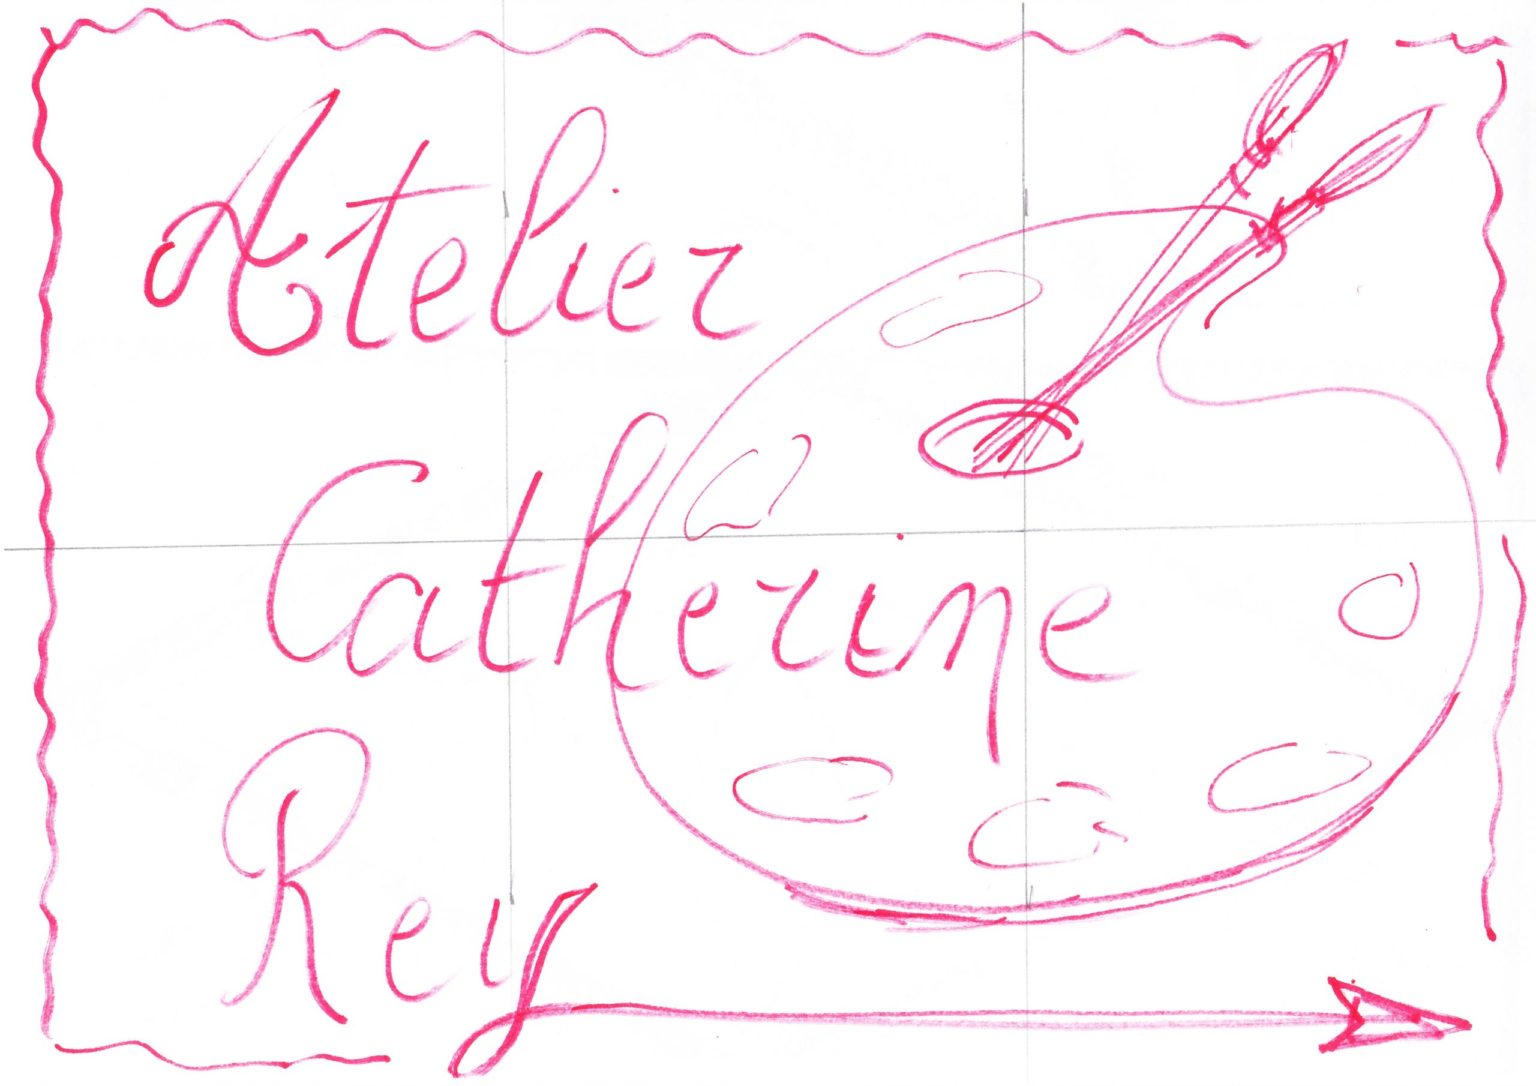 Atelier
Catherine
Rey